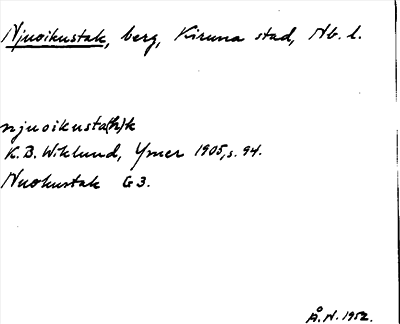 Njuoikustak, berg, Kiruna stad, Nb. l.
njuoikusta(h)k
K.B. Wiklund, Ymer 1905, s. 94.
Nuokustak G3.
Å.N. 1952.